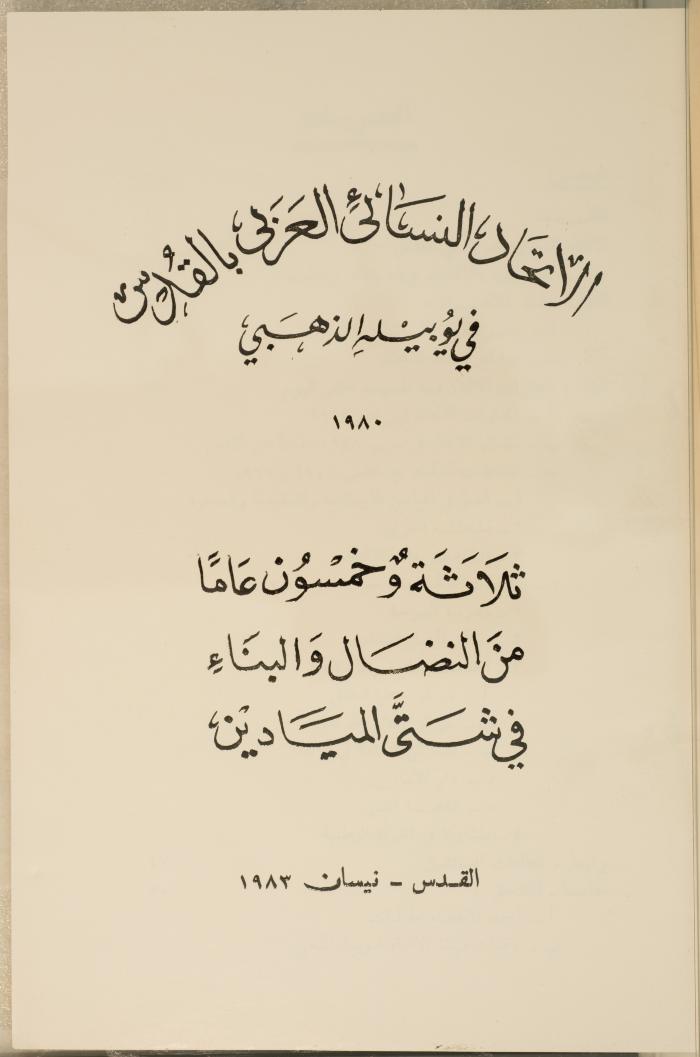 الاتحاد النسائي العربي بالقدس
في يوبيله الذهبي
١٩٨٠
ثلاثة وخمسون عامًا
منَ النضال وَالبنَاءِ
في شتَّى الميَاديْن
القدس - نيسان ١٩٨٣